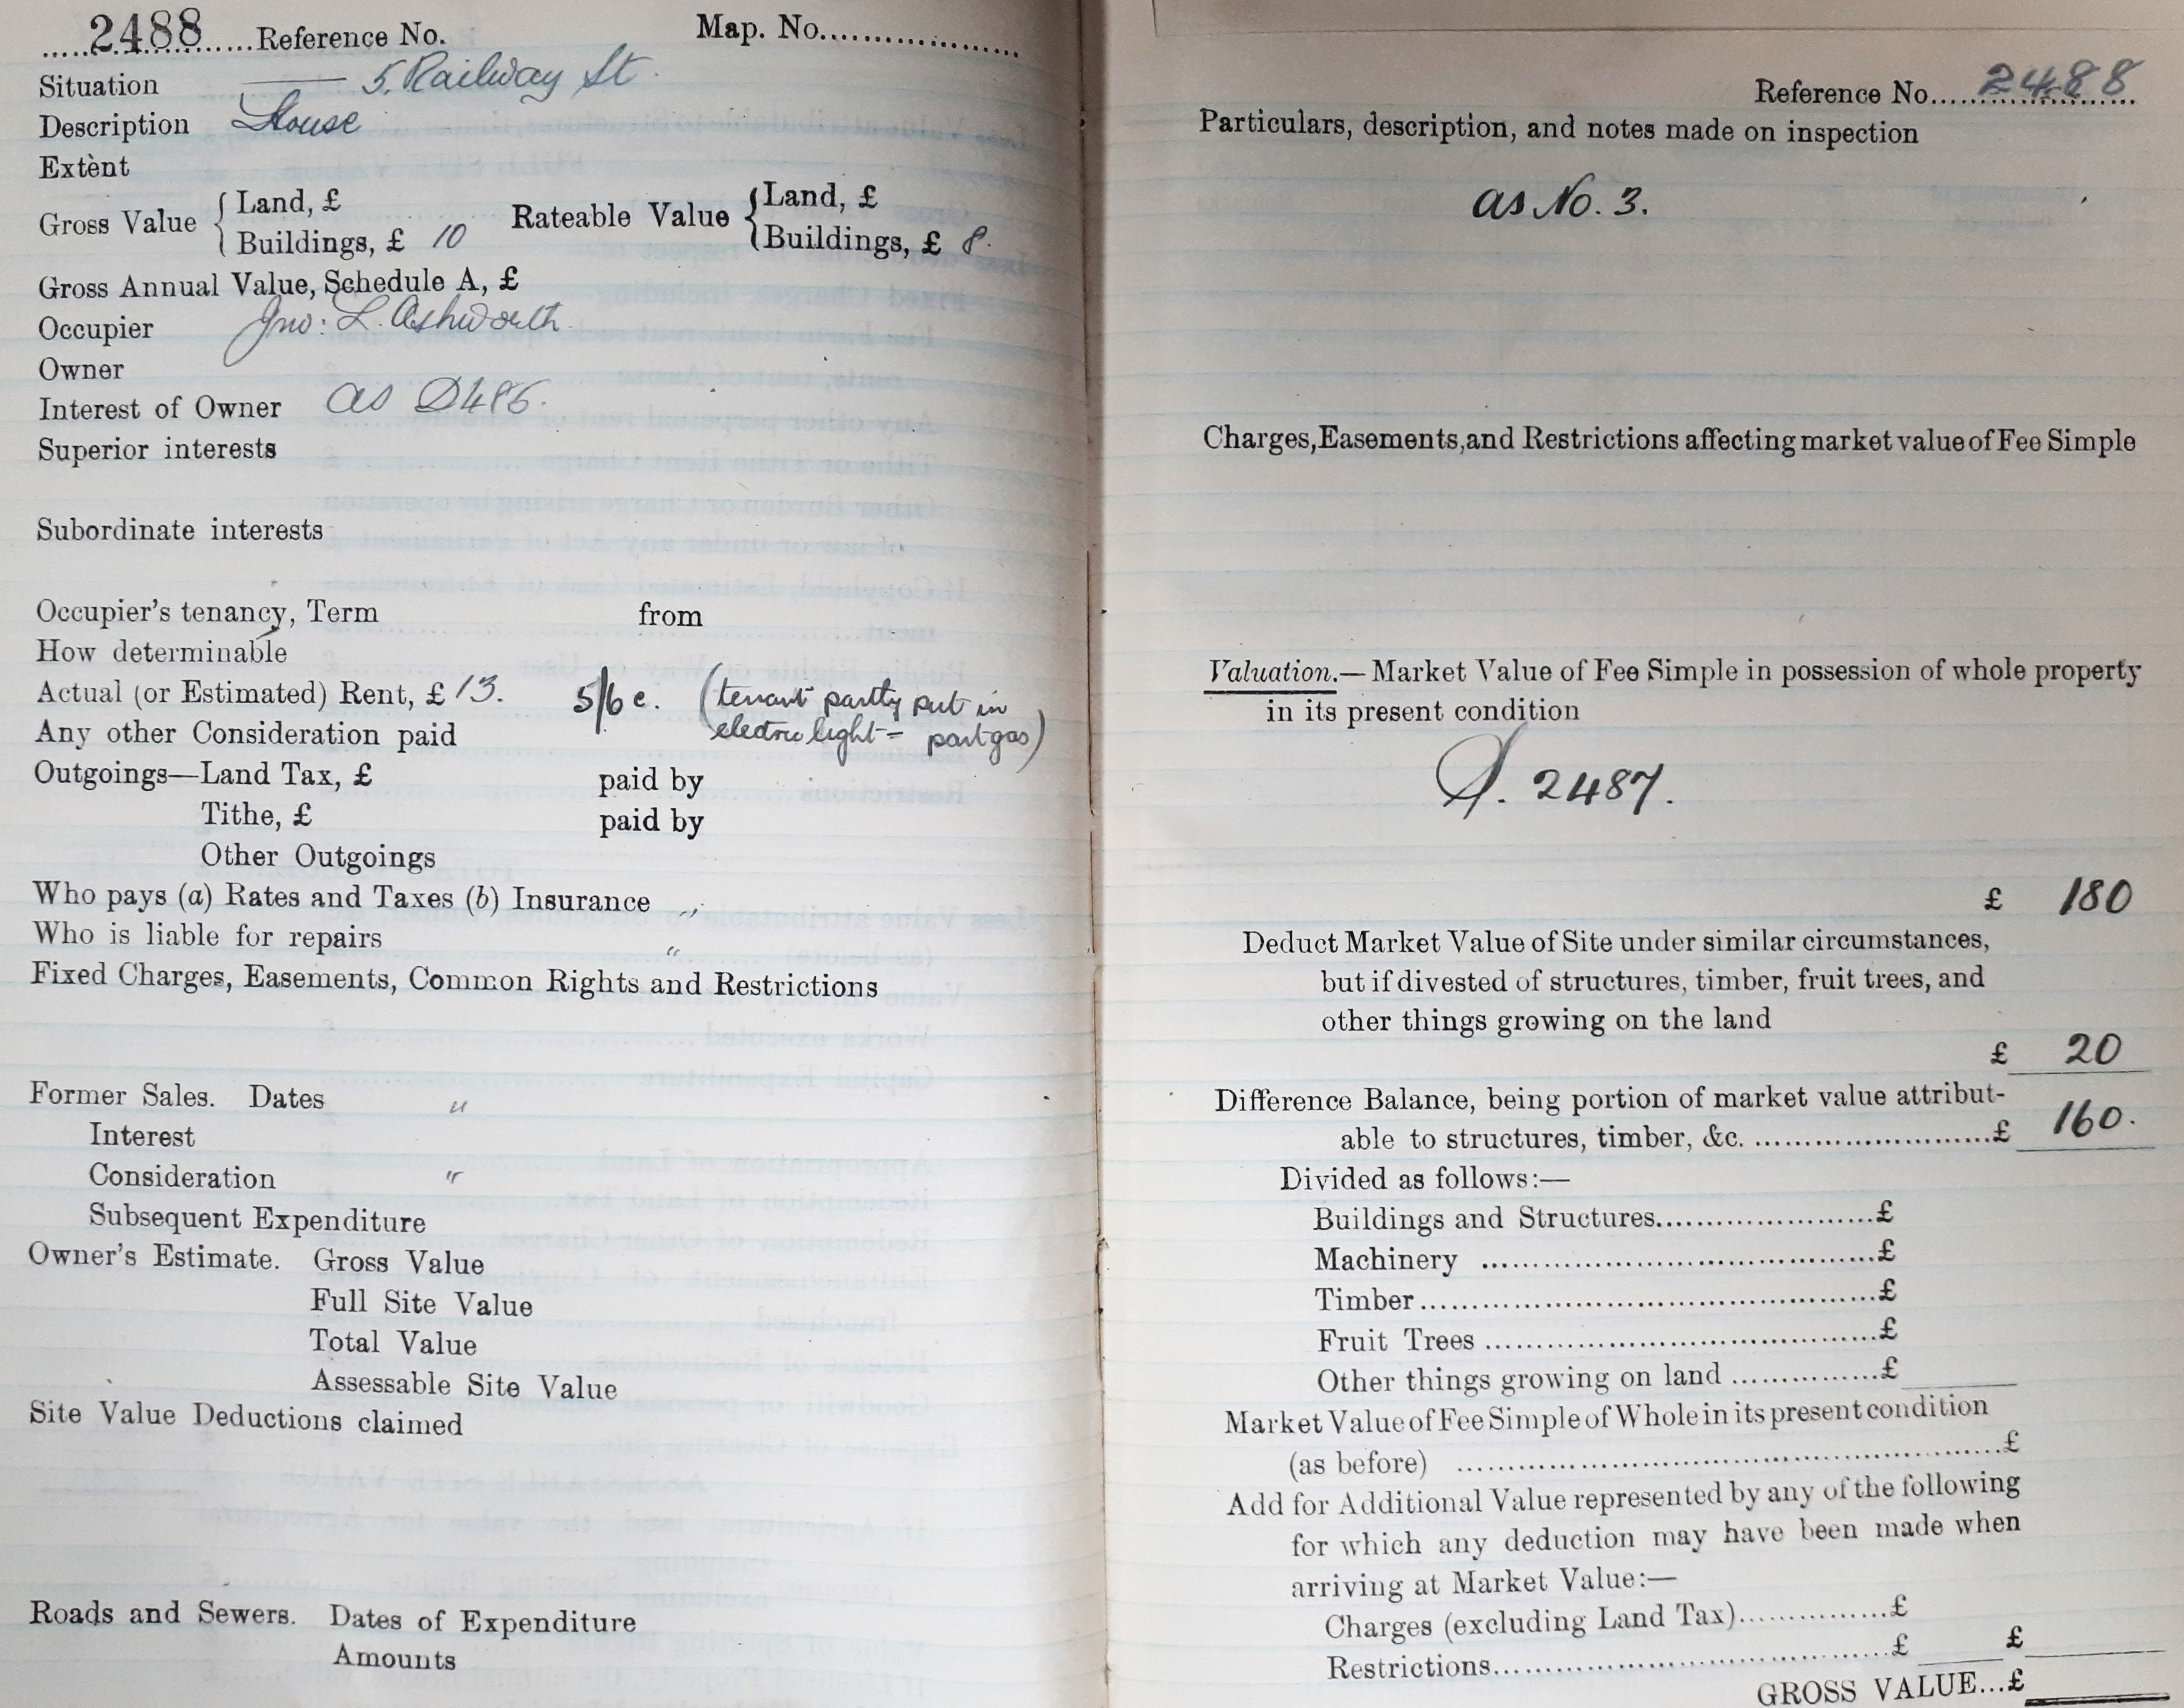 2488 Reference No. Map. No.
Situation 5, Railway St.
Description House
Extent
Gross Value { Land, £ Rateable Value { Land, £
Buildings, £ 10 Buildings, £ 8.
Gross Annual Value, Schedule A, £
Occupier Jno: L. Ashworth.
Owner
Interest of Owner as 2486.
Superior interests
Subordinate interests
Occupier's tenancy, Term from
How determinable
Actual (or Estimated) Rent, £ 13. 5/6 c. (tenant partly put in
Any other Consideration paid electric light - part gas)
Outgoings—Land Tax, £ paid by
Tithe, £ paid by
Other Outgoings
Who pays (a) Rates and Taxes (b) Insurance "
Who is liable for repairs "
Fixed Charges, Easements, Common Rights and Restrictions
Former Sales. Dates "
Interest
Consideration "
Subsequent Expenditure
Owner's Estimate. Gross Value
Full Site Value
Total Value
Assessable Site Value
Site Value Deductions claimed
Roads and Sewers. Dates of Expenditure
Amounts
Reference No. 2488
Particulars, description, and notes made on inspection
as No. 3.
Charges, Easements, and Restrictions affecting market value of Fee Simple
Valuation.—Market Value of Fee Simple in possession of whole property
in its present condition
2487.
£ 180
Deduct Market Value of Site under similar circumstances,
but if divested of structures, timber, fruit trees, and
other things growing on the land
£ 20
Difference Balance, being portion of market value attribut-
able to structures, timber, &c. £ 160.
Divided as follows:—
Buildings and Structures £
Machinery £
Timber £
Fruit Trees £
Other things growing on land £
Market Value of Fee Simple of Whole in its present condition
(as before) £
Add for Additional Value represented by any of the following
for which any deduction may have been made when
arriving at Market Value:—
Charges (excluding Land Tax) £
Restrictions £ £
GROSS VALUE...£